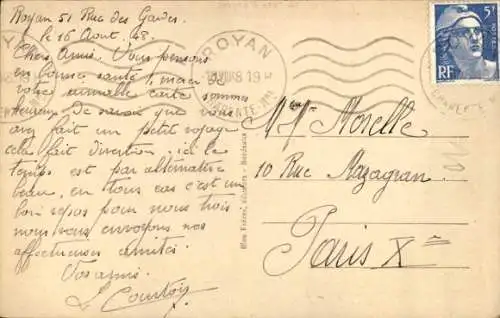 Royan 51 Rue des Gardes.
le 16 Aout. 48.
Chers Amis. Vous pensons
en bonne santé, merci de
votre aimable carte sommes
heureux de savoir que vous
avez fait un petit voyage
cela fait diversion, ici le
temps est par alternative
beau, en tous cas c'est un
bon repos pour nous trois
nous vous envoyons nos
affectueuses amitiés
Vos amis.
L Courtois
ROYAN
19 H
CHARENTE-MME
5F
RF
Mme Morelle
10 Rue Mazagran.
Paris Xe
Bordeaux